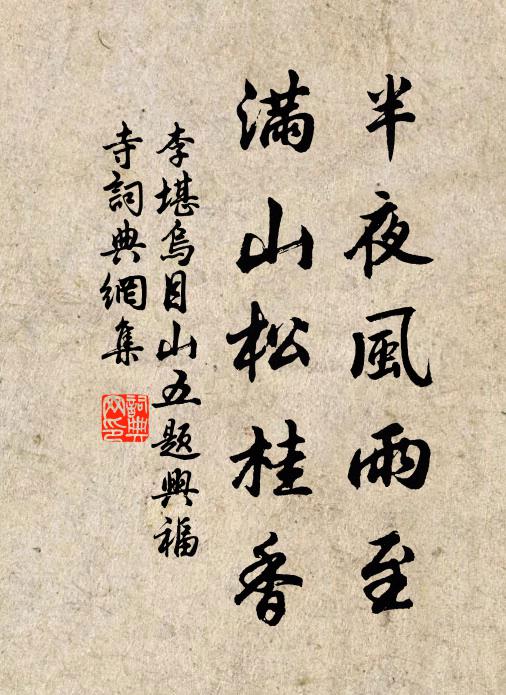 半夜風雨至
滿山松桂香
李堪烏目山五題興福
寺詞典網集
詞典
網印